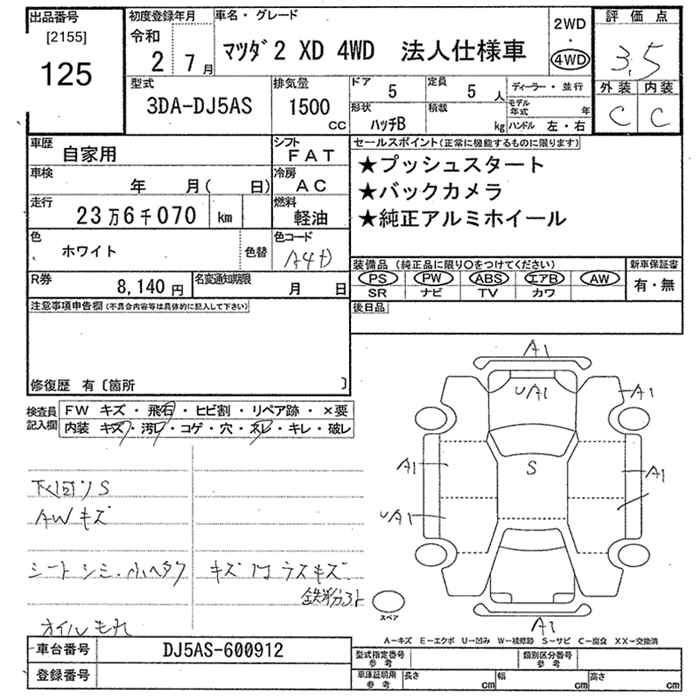 出品番号
[2155]
125
初度登録年月
令和
2 7月
車名・グレード
マツダ2 XD 4WD 法人仕様車
2WD
・
4WD
評価点
3.5
外装 内装
C C
型式
3DA-DJ5AS
排気量
1500
CC
ドア 5
定員 5 人
ディーラー・並行
形状
ハッチB
積載
kg
モデル年式 年
ハンドル 左・右
車歴
自家用
シフト
FAT
車検
年 月( 日)
冷房
AC
走行
23万6千070 km
燃料
軽油
色
ホワイト
色替
色コード
A4D
R券
8,140円
名変通知期限
月 日
セールスポイント(正常に機能するものに限ります)
★プッシュスタート
★バックカメラ
★純正アルミホイール
装備品(純正品に限り○をつけてください)
PS PW ABS エアB AW
SR ナビ TV カワ
新車保証書
有・無
後日品
注意事項申告欄(不具合内容等は具体的に記入して下さい)
修復歴 有〔箇所 〕
検査員
記入欄
FW キズ・飛石・ヒビ割・リペア跡・×要
内装 キズ・汚レ・コゲ・穴・スレ・キレ・破レ
下回りS
AWキズ
シートシミ・小ヘタリ
オイルもれ
鉄粉
A1
UA1
A1
A1
S
A1
UA1
A1
スペア
A-キズ E-エクボ U-凹み W-補修跡 S-サビ C-腐食 XX-交換済
車台番号
DJ5AS-600912
登録番号
型式指定番号
参考
類別区分番号
参考
車庫証明用
参考
長さ cm
幅 cm
高さ cm